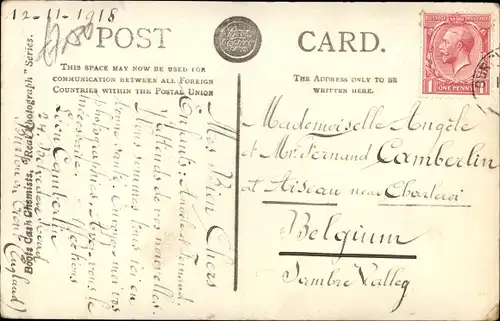 12-11-1918
POST CARD.
THIS SPACE MAY NOW BE USED FOR
COMMUNICATION BETWEEN ALL FOREIGN
COUNTRIES WITHIN THE POSTAL UNION
THE ADDRESS ONLY TO BE
WRITTEN HERE.
ONE PENNY
Mademoiselle Angèle
et Mr. Fernand Camberlin
at Aiseau near Charleroi
Belgium
Sambre Valley
Mes Bien Chers
Enfants: Angèle & Fernand.
J'attends de vos nouvelles.
Nous sommes tous ici en
bonne santé. Envoyez-moi vos
photographies. Avez-vous le
nécessaire. Affections
Léon Camberlin
(England)
Boots Cash Chemists, "Real Photograph" Series.